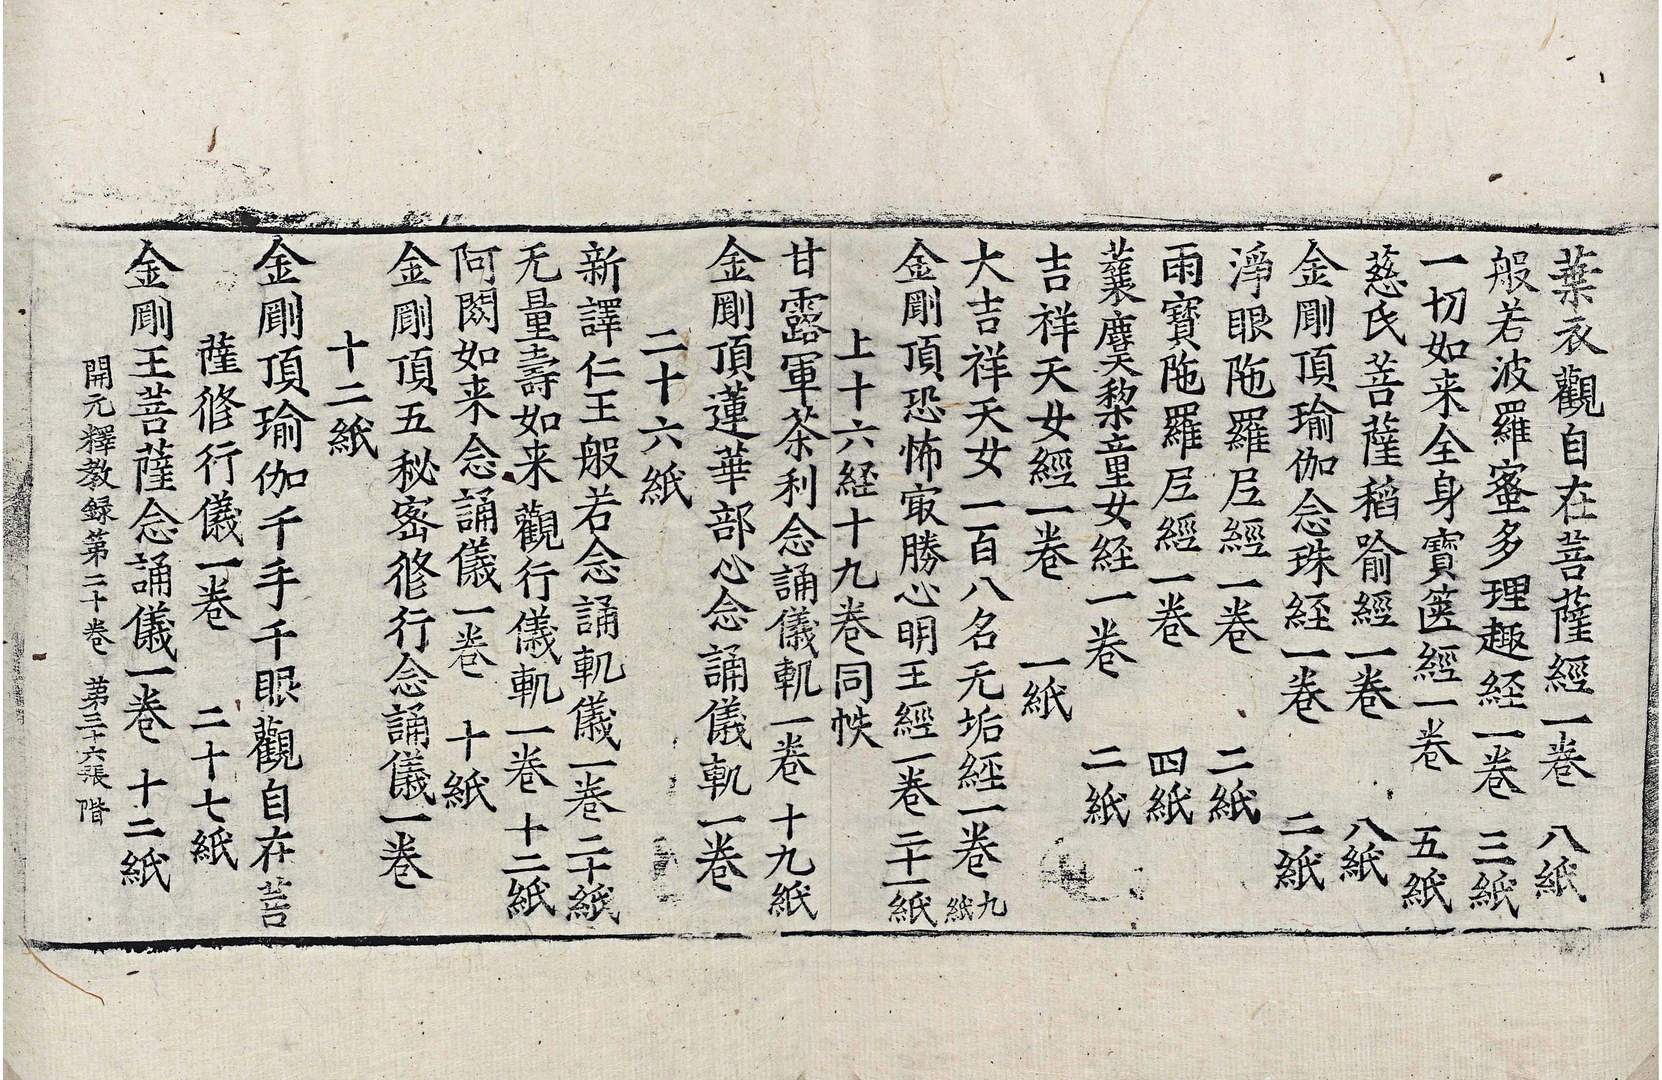 葉衣觀自在菩薩經一卷 八紙
般若波羅蜜多理趣経一卷 三紙
一切如来全身寶篋經一卷 五紙
慈氏菩薩稻喻經一卷 八紙
金剛頂瑜伽念珠経一卷 二紙
淨眼陁羅尼經一卷 二紙
雨寶陁羅尼經一卷 四紙
蘘麌梨童女経一卷 二紙
吉祥天女經一卷 一紙
大吉祥天女一百八名无垢経一卷 九紙
金剛頂恐怖㝡勝心明王經一卷 二十一紙
上十六経十九卷同帙
甘露軍茶利念誦儀軌一卷 十九紙
金剛頂蓮華部心念誦儀軌一卷
二十六紙
新譯仁王般若念誦軌儀一卷 二十紙
无量壽如来觀行儀軌一卷 十二紙
阿閦如来念誦儀一卷 十紙
金剛頂五秘密修行念誦儀一卷
十二紙
金剛頂瑜伽千手千眼觀自在菩
薩修行儀一卷 二十七紙
金剛王菩薩念誦儀一卷 十二紙
開元釋教録第二十卷 第三十六張 階